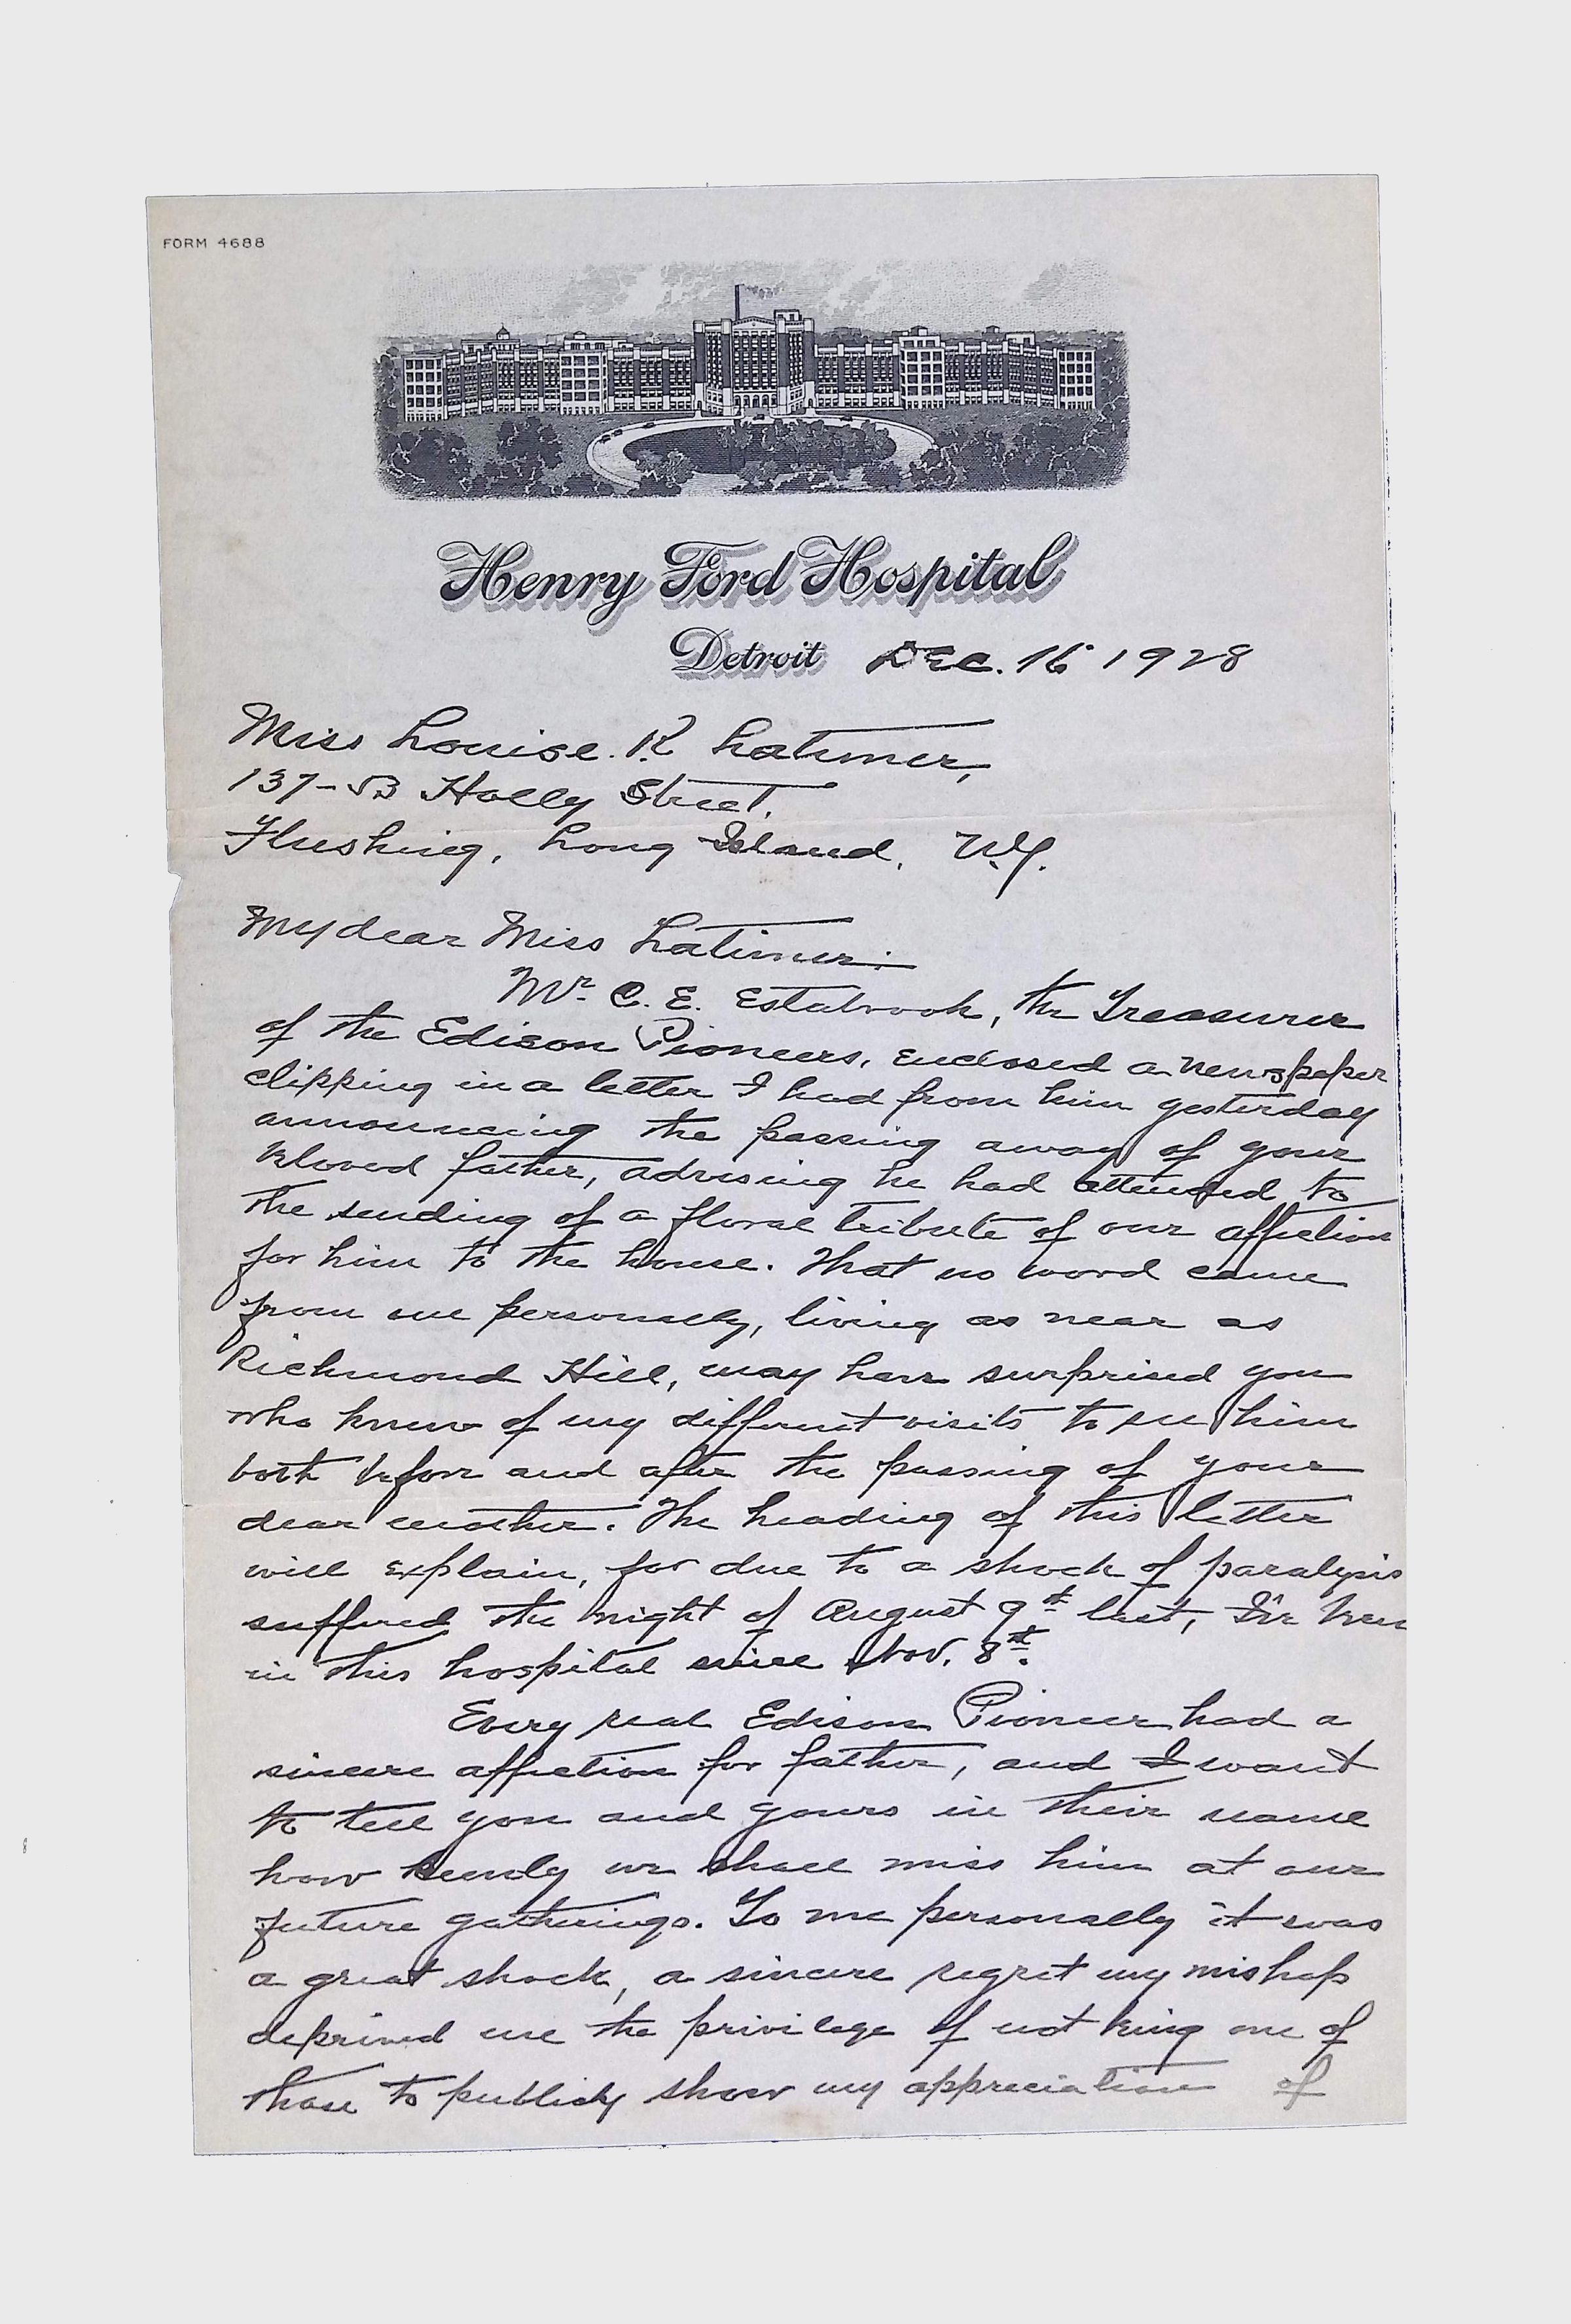 FORM 4688
Henry Ford Hospital
Detroit Dec. 16 1928
Miss Louise. R Latimer,
137-53 Holly Street,
Flushing, Long Island, N.Y.
My dear Miss Latimer:
Mr. C. E. Estabrook, the Treasurer
of the Edison Pioneers, enclosed a newspaper
clipping in a letter I had from him yesterday
announcing the passing away of your
beloved father, advising he had attended to
the sending of a floral tribute of our affection
for him to the house. That no word came
from me personally, living as near as
Richmond Hill, may have surprised you
who knew of my different visits to see him
both before and after the passing of your
dear mother. The heading of this letter
will explain, for due to a shock of paralysis
suffered the night of August 9th last, I've been
in this hospital since Nov. 8th.
Every real Edison Pioneer had a
sincere affection for father, and I want
to tell you and yours in their name
how keenly we shall miss him at our
future gatherings. To me personally it was
a great shock, a sincere regret my mishap
deprived me the privilege of not being one of
those to publicly show my appreciation of